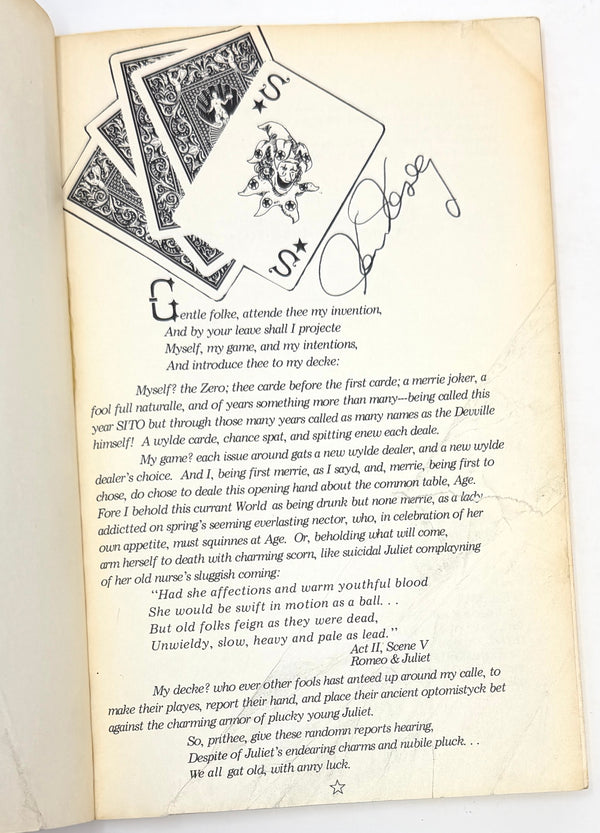 S
S
Ken Kesey
Gentle folke, attende thee my invention,
And by your leave shall I projecte
Myself, my game, and my intentions,
And introduce thee to my decke:
Myself? the Zero; thee carde before the first carde; a merrie joker, a
fool full naturalle, and of years something more than many---being called this
year SITO but through those many years called as many names as the Devville
himself! A wylde carde, chance spat, and spitting enew each deale.
My game? each issue around gats a new wylde dealer, and a new wylde
dealer's choice. And I, being first merrie, as I sayd, and, merrie, being first to
chose, do chose to deale this opening hand about the common table, Age.
Fore I behold this currant World as being drunk but none merrie, as a lady
addictted on spring's seeming everlasting nector, who, in celebration of her
own appetite, must squinnes at Age. Or, beholding what will come,
arm herself to death with charming scorn, like suicidal Juliet complayning
of her old nurse's sluggish coming:
"Had she affections and warm youthful blood
She would be swift in motion as a ball. . .
But old folks feign as they were dead,
Unwieldy, slow, heavy and pale as lead."
Act II, Scene V
Romeo & Juliet
My decke? who ever other fools hast anteed up around my calle, to
make their playes, report their hand, and place their ancient optomistyck bet
against the charming armor of plucky young Juliet.
So, prithee, give these randomn reports hearing,
Despite of Juliet's endearing charms and nubile pluck. . .
We all gat old, with anny luck.